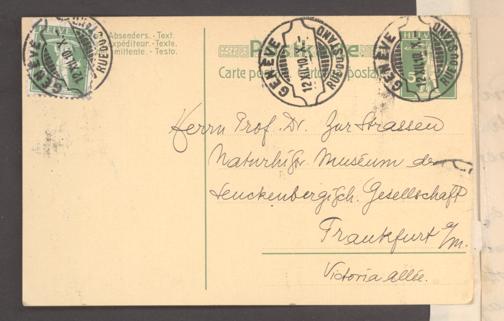 Absenders. - Text.
Expéditeur. - Texte.
Mittente. - Testo.
GENÈVE
RUE DU STAND
GENÈVE
12.XII.10. X-
RUE DU STAND
GENÈVE
12.XII.10. X-
RUE DU STAND
Postkarte
Carte postale
Cartolina postale
5
Herrn Prof. Dr. Zur Strassen
Naturhist. Museum der
Senckenbergisch. Gesellschaft
Frankfurt a/m.
Victoria allée.